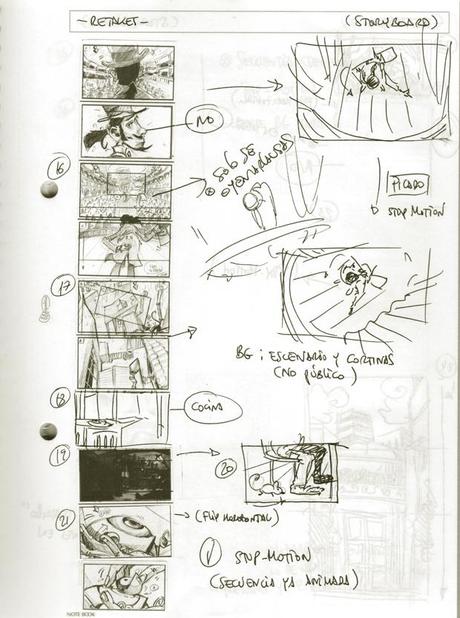 — RETAKET —
(STORYBOARD)
NO
16
SOLO SE
PICADO
STOP MOTION
17
BG: ESCENARIO Y CORTINAS
(NO PÚBLICO)
18
COCINA
19
20
21
(FLIP HORIZONTAL)
STOP-MOTION
(SECUENCIA YA ANIMADA)
NOTE BOOK